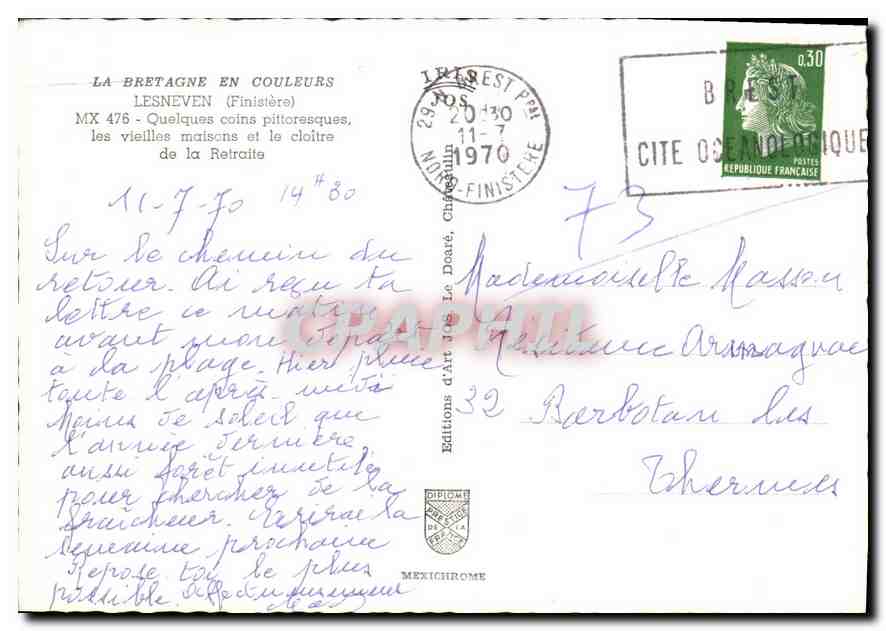 LA BRETAGNE EN COULEURS
LESNEVEN (Finistère)
MX 476 - Quelques coins pittoresques,
les vieilles maisons et le cloître
de la Retraite
11-7-70 14H30
Sur le chemin du
retour. Ai reçu ta
lettre ce matin
avant mon départ
à la plage. Hier pluie
toute l'après-midi
Moins de soleil que
l'année dernière,
aussi forêt inutile
pour chercher de la
fraîcheur. Ecrirai la
semaine prochaine
Repose toi le plus
possible. Affectueusement
Editions d'Art JOS Le Doaré, Châteaulin
IRIS
JOS
29 N BREST Ppal
20H30
11-7
1970
NORD-FINISTERE
BREST
CITE OCEANOLOGIQUE
0,30
POSTES
REPUBLIQUE FRANÇAISE
73
Mademoiselle Masson
Résidence Armagnac
32 Barbotan les
Thermes
DIPLOME
PRESTIGE
DE LA
FRANCE
MEXICHROME
CPAPHIL